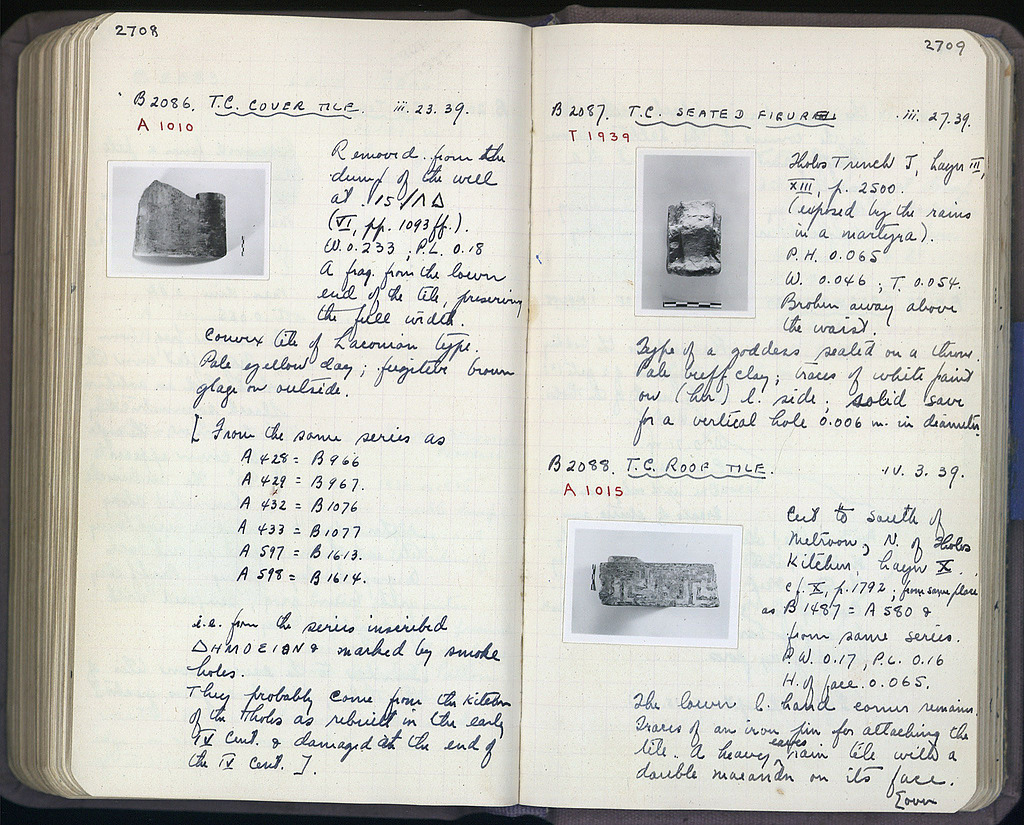 2708
B 2086. T.C. COVER TILE. iii. 23. 39.
A 1010
Removed from the
dump of the well
at 15/ΛΔ
(VI, pp. 1093 ff.).
W. 0.233, P.L. 0.18
A frag. from the lower
end of the tile, preserving
the full width.
Convex tile of Laconian type.
Pale yellow clay; fugitive brown
glaze on outside.
[ From the same series as
A 428 = B 966
A 429 = B 967.
A 432 = B 1076
A 433 = B 1077
A 597 = B 1613.
A 598 = B 1614.
i.e. from the series inscribed
ΔΗΜΟΣΙΟΝ & marked by smoke
holes.
They probably come from the kitchen
of the Tholos as rebuilt in the early
IV cent. & damaged at the end of
the IV cent. ].
2709
B 2087. T.C. SEATED FIGURE. iii. 27. 39.
T 1939
Tholos Trench J, Layer III,
XIII, p. 2500.
(exposed by the rains
in a martyra).
P.H. 0.065
W. 0.046; T. 0.054.
Broken away above
the waist.
Type of a goddess seated on a throne.
Pale buff clay; traces of white paint
on (her) l. side; solid save
for a vertical hole 0.006 m. in diameter.
B 2088. T.C. ROOF TILE. iv. 3. 39.
A 1015
Cut to south of
Metroon, N. of Tholos
Kitchen, layer X.
cf. X, p. 1792; from same place
as B 1487 = A 580 &
from same series.
P.W. 0.17, P.L. 0.16
H. of face. 0.065.
The lower l. hand corner remains.
Traces of an iron pin for attaching the
tile. A heavy eaves rain tile with a
double maeander on its face.
[over